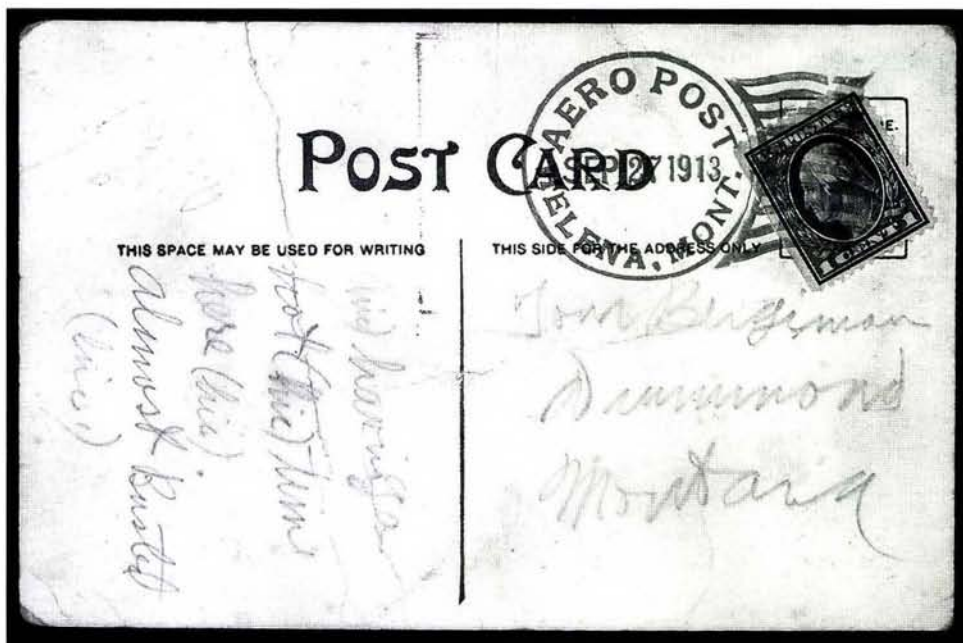 POST CARD
AERO POST
SEP 27 1913
HELENA, MONT.
U.S. POSTAGE
1 CENT 1
THIS SPACE MAY BE USED FOR WRITING
THIS SIDE FOR THE ADDRESS ONLY
having a
hoot (hic) time
here (hic)
almost busted
(hic)
Tom
Drummond
Montana